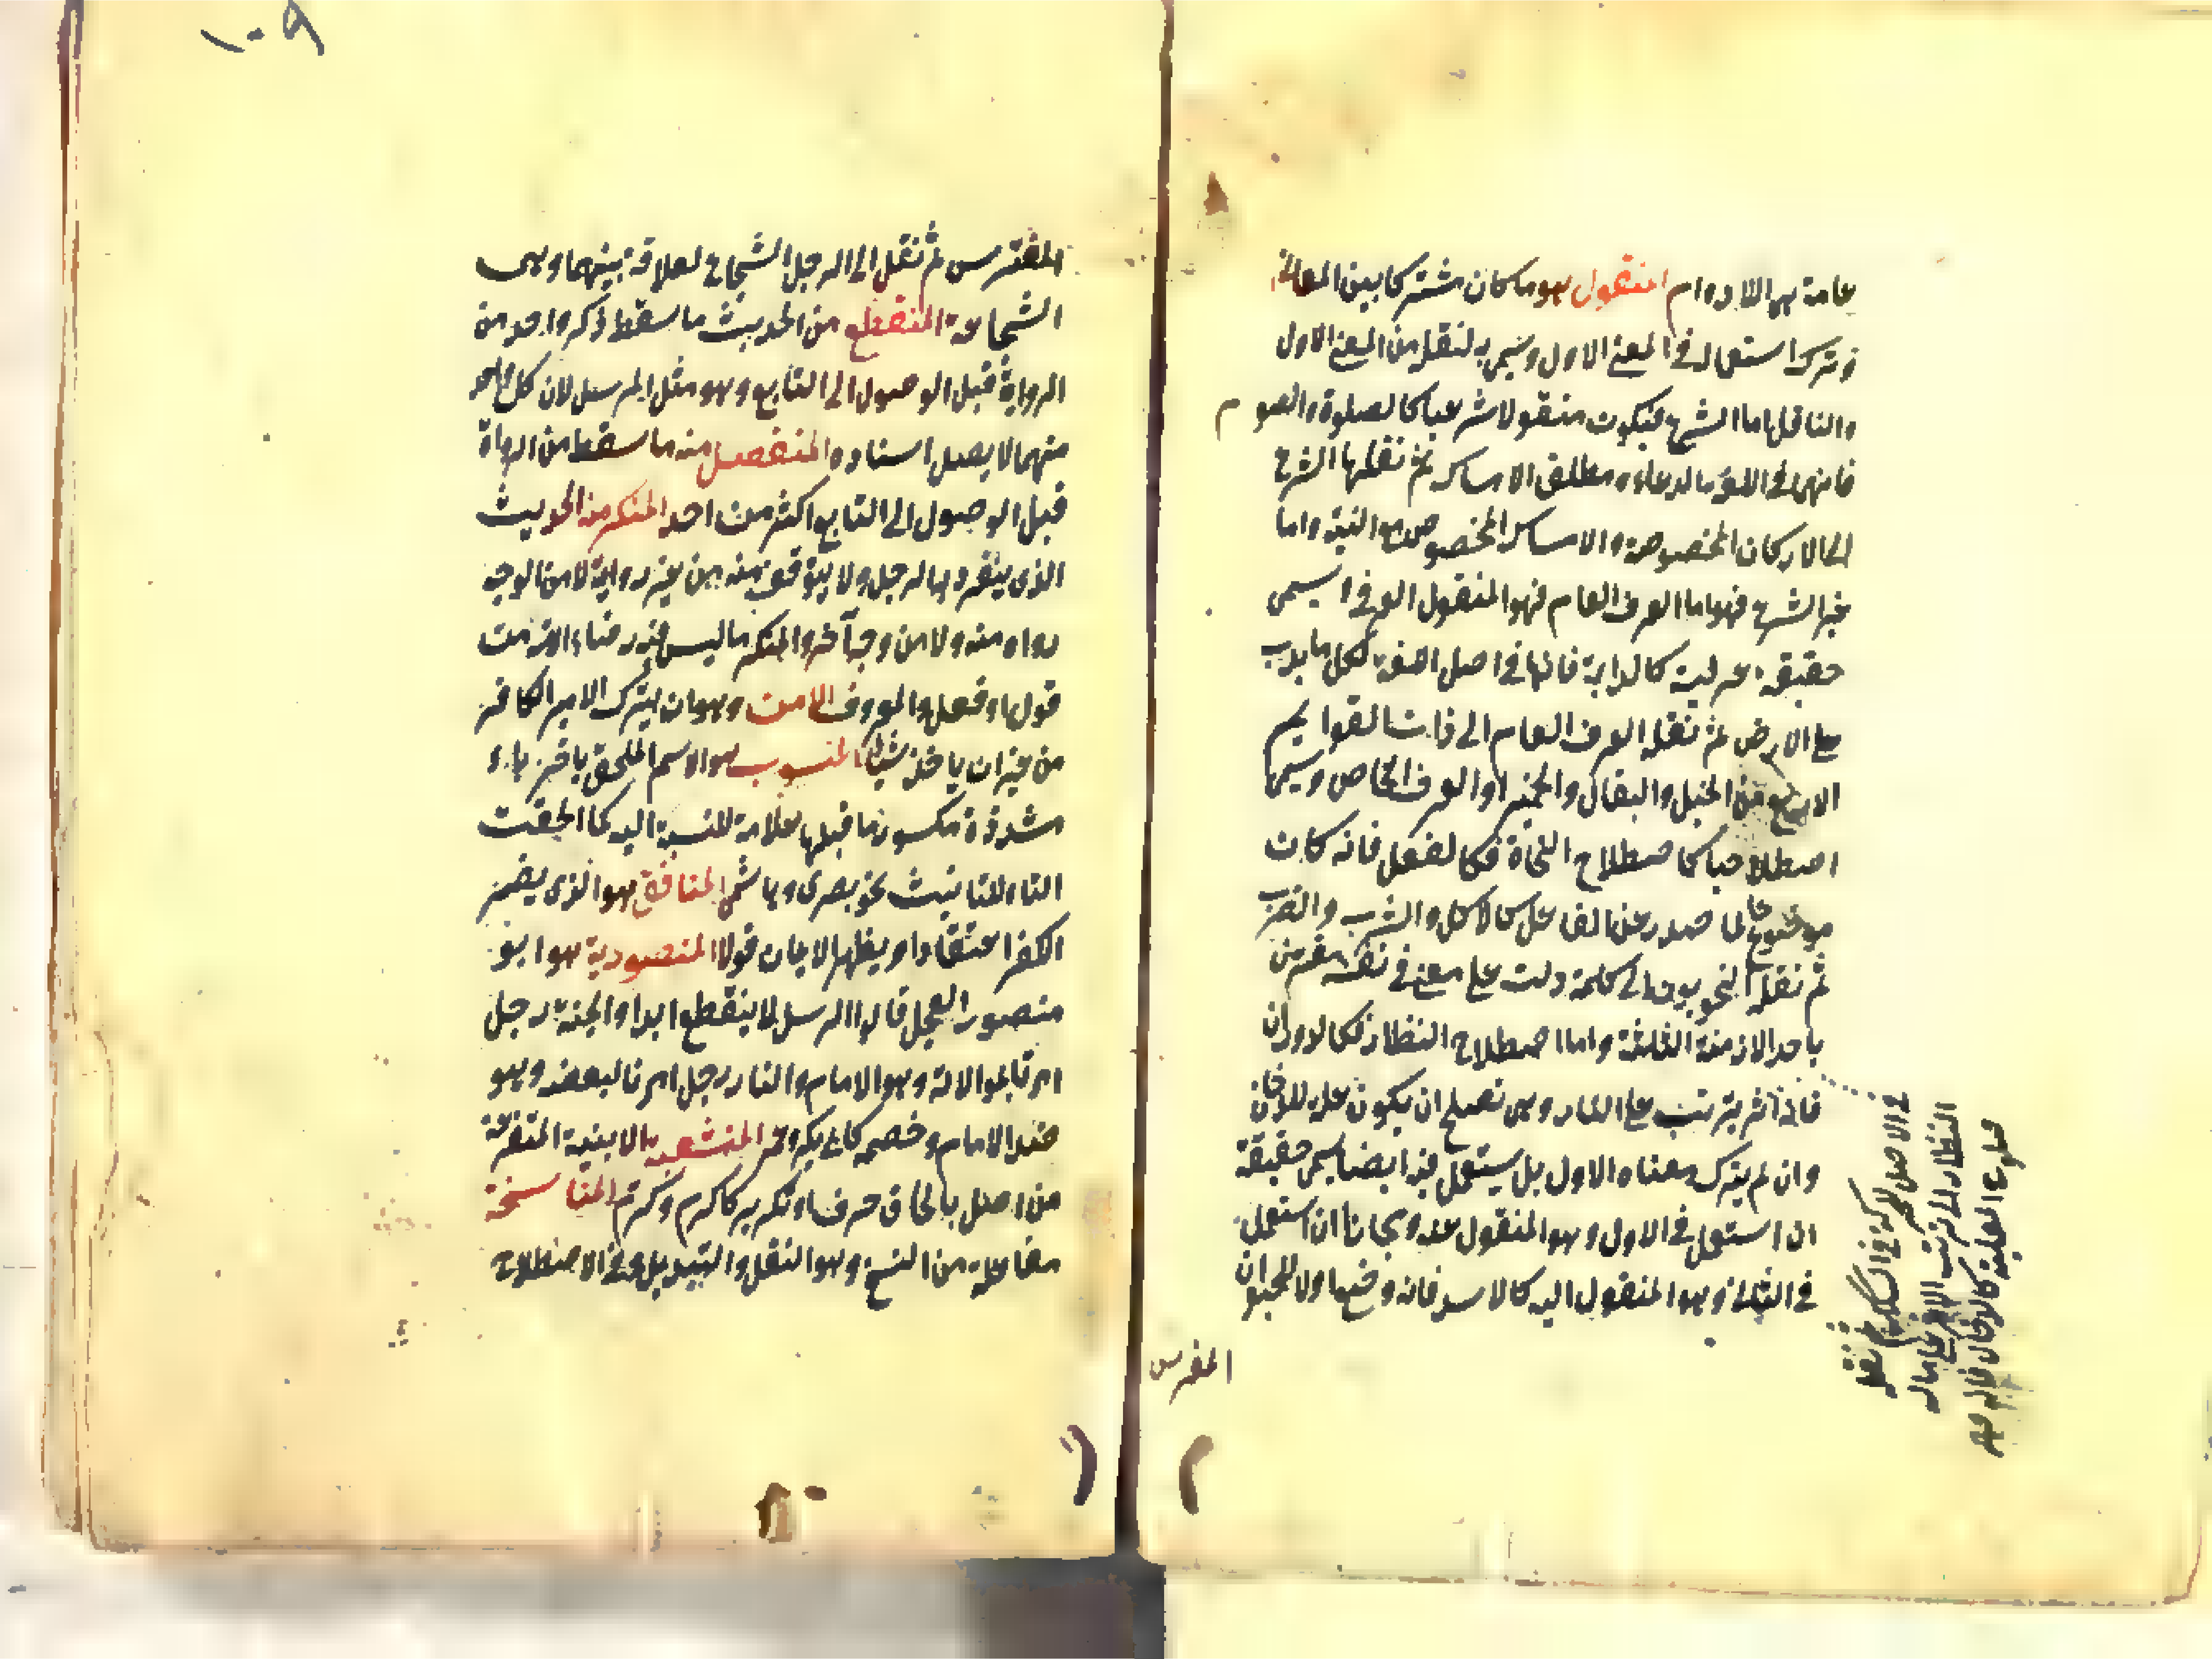 عامة بها الا دوام المنقول هو ما كان مشتركا بين المعانى
وترك استعماله فى المعنى الاول ويسمى به لنقله من المعنى الاول
والناقل اما الشرع فيكون منقولا شرعيا كالصلوة والصوم
فانهما فى اللغة الدعاء ومطلق الامساك ثم نقلها الشرع
الى الاركان المخصوصة والامساك المخصوص مع النية واما
غير الشرع فهو اما العرف العام فهو المنقول العرفى ا يسمى
حقيقة عرفية كالدابة فانها فى اصل اللغة لكل ما يدب
على الارض ثم نقله العرف العام الى ذات القوايم
الاربع من الخيل والبغال والحمير او العرف الخاص ويسمى
اصطلاحيا كاصطلاح النحاة فكالفعل فانه كان
موضوعا لما صدر عن الفاعل كالاكل والشرب والضرب
ثم نقله النحويون الى كلمة دلت على معنى فى نفسه مقترن
باحد الازمنة الثلثة واما اصطلاح النظار فكالدوران
فانه اثر يترتب على النار وهى تصلح ان يكون علة للدخان
وان لم يترك معناه الاول بل يستعمل فيه ايضا يسمى حقيقة
ان استعمل فى الاول وهو المنقول عنه ومجازا ان استعمل
فى الثانى وهو المنقول اليه كالاسد فانه وضع اولا للحيوان
المفترس
فى الاصل للحركة فى السكك ثم نقله
النظار الى ترتب الاثر على ما له
صلوح العلية كالدخان فانه
١٠٩
المفترس ثم نقل الى الرجل الشجاع لعلاقة بينهما وهى
الشجاعة المنقطع من الحديث ما سقط ذكر واحد من
الرواة قبل الوصول الى التابع وهو مثل المرسل لان كل واحد
منهما لا يصل اسناده المنفصل منه ما سقط من الرواة
قبل الوصول الى التابع اكثر من احد المنكر من الحديث
الذى ينفرد به الرجل ولا يتوقف منه من غير رواية لا من الوجه
رواه منه ولا من وجه آخر والمنكر ما ليس فيه رضاء الله من
قول او فعل والمعروف الامن وهو ان يترك الامير الكافر
من غير ان ياخذ شيئا المنسوب هو الاسم الملحق باخره ياء
مشددة مكسور ما قبلها علامة للنسبة اليه كما الحقت
التاء للتانيث نحو بصرى وهاشمى المنافق هو الذى يضمر
الكفر اعتقادا ويظهر الايمان قولا المنصورية هو ابو
منصور العجلى قالوا الرسل لا ينقطع ابدا والجنة رجل
امرنا بموالاته وهو الامام والنار رجل امرنا ببغضه وهو
ضد الامام وخصمه كابى بكر وعمر المنشعبة الابنية المتفرعة
من اصل بالحاق حرف او تكريره كاكرم وكرّم المناسخة
مفاعلة من النسخ وهو النقل والتبديل وفى الاصطلاح